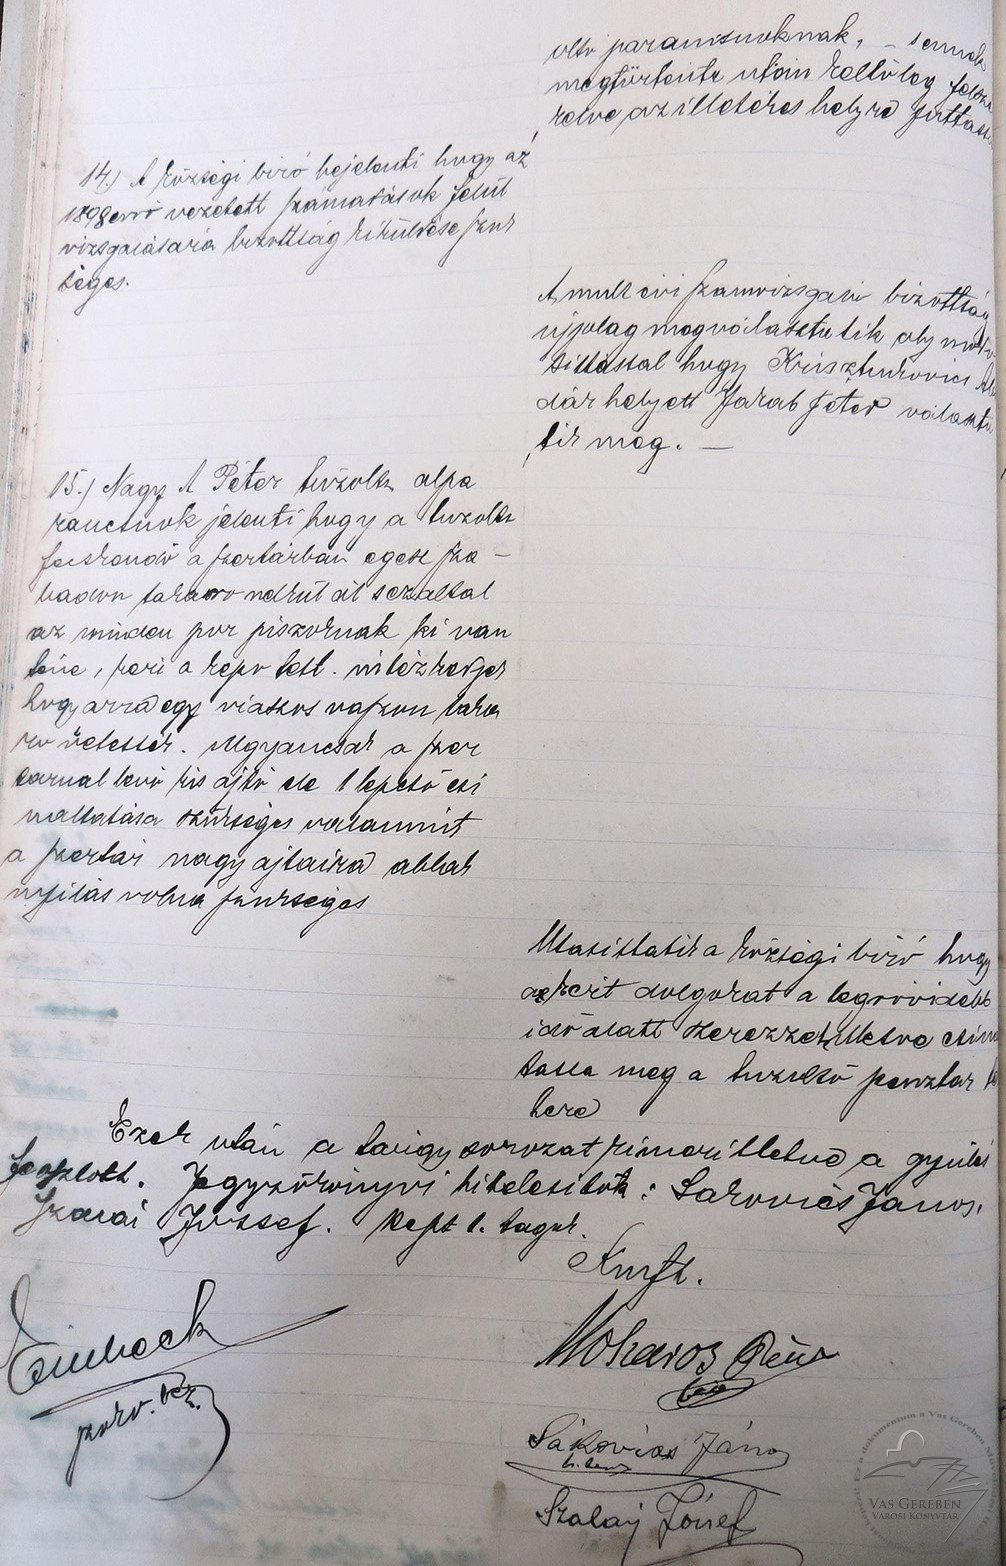 oltó parancsnoknak, – s ennek
megtörténte utáin kellőleg felsze
relve az illetékes helyre juttassa
14.) A községi biró bejelenti hogy az
1898 evrő vezetett számadások felül
vizsgálására bizottság kiküldése szük
séges.
A mult évi számvizsgáló bizottság
ujolag megválasztatik oly módo
sittással hogy Krisztinkovics
dár helyett Jarab Péter választa
tik meg. –
15.) Nagy A Péter tűzoltó alpa
rancsnok jelenti hogy a tuzoltó
fecskendő a szertárban egész sza –
badon takaro nélkül áll s ezáltal
az minden por piszoknak ki van
téve, kéri a kepv test. intézkedjék
hogy arra egy viaszos vászon taka
ro vétessék. Ugyancsak a szer
tárnal levő kis ajtó ele 1 lepcső csi
náltatása szükséges valamint
a szertár nagy ajtaira ablak
nyilás volna szükséges
Utasittatik a községi biró hogy
ezkeit dolgokat a legrövidebb
idő alatt szerezze illetve csinál
tassa meg a tuzoltó penztár
here
Ezek után a tárgysorozat kimerittetve a gyülés
feoszlott. Jegyzőkönyvi hitelesitök: Sakovics János,
Szalai József. kept t. tagok.
Kmft.
Mokaros Géza
biró
szerv. bez.
Sákovics János
Szalay József
VAS GEREBEN
VÁROSI KÖNYVTÁR